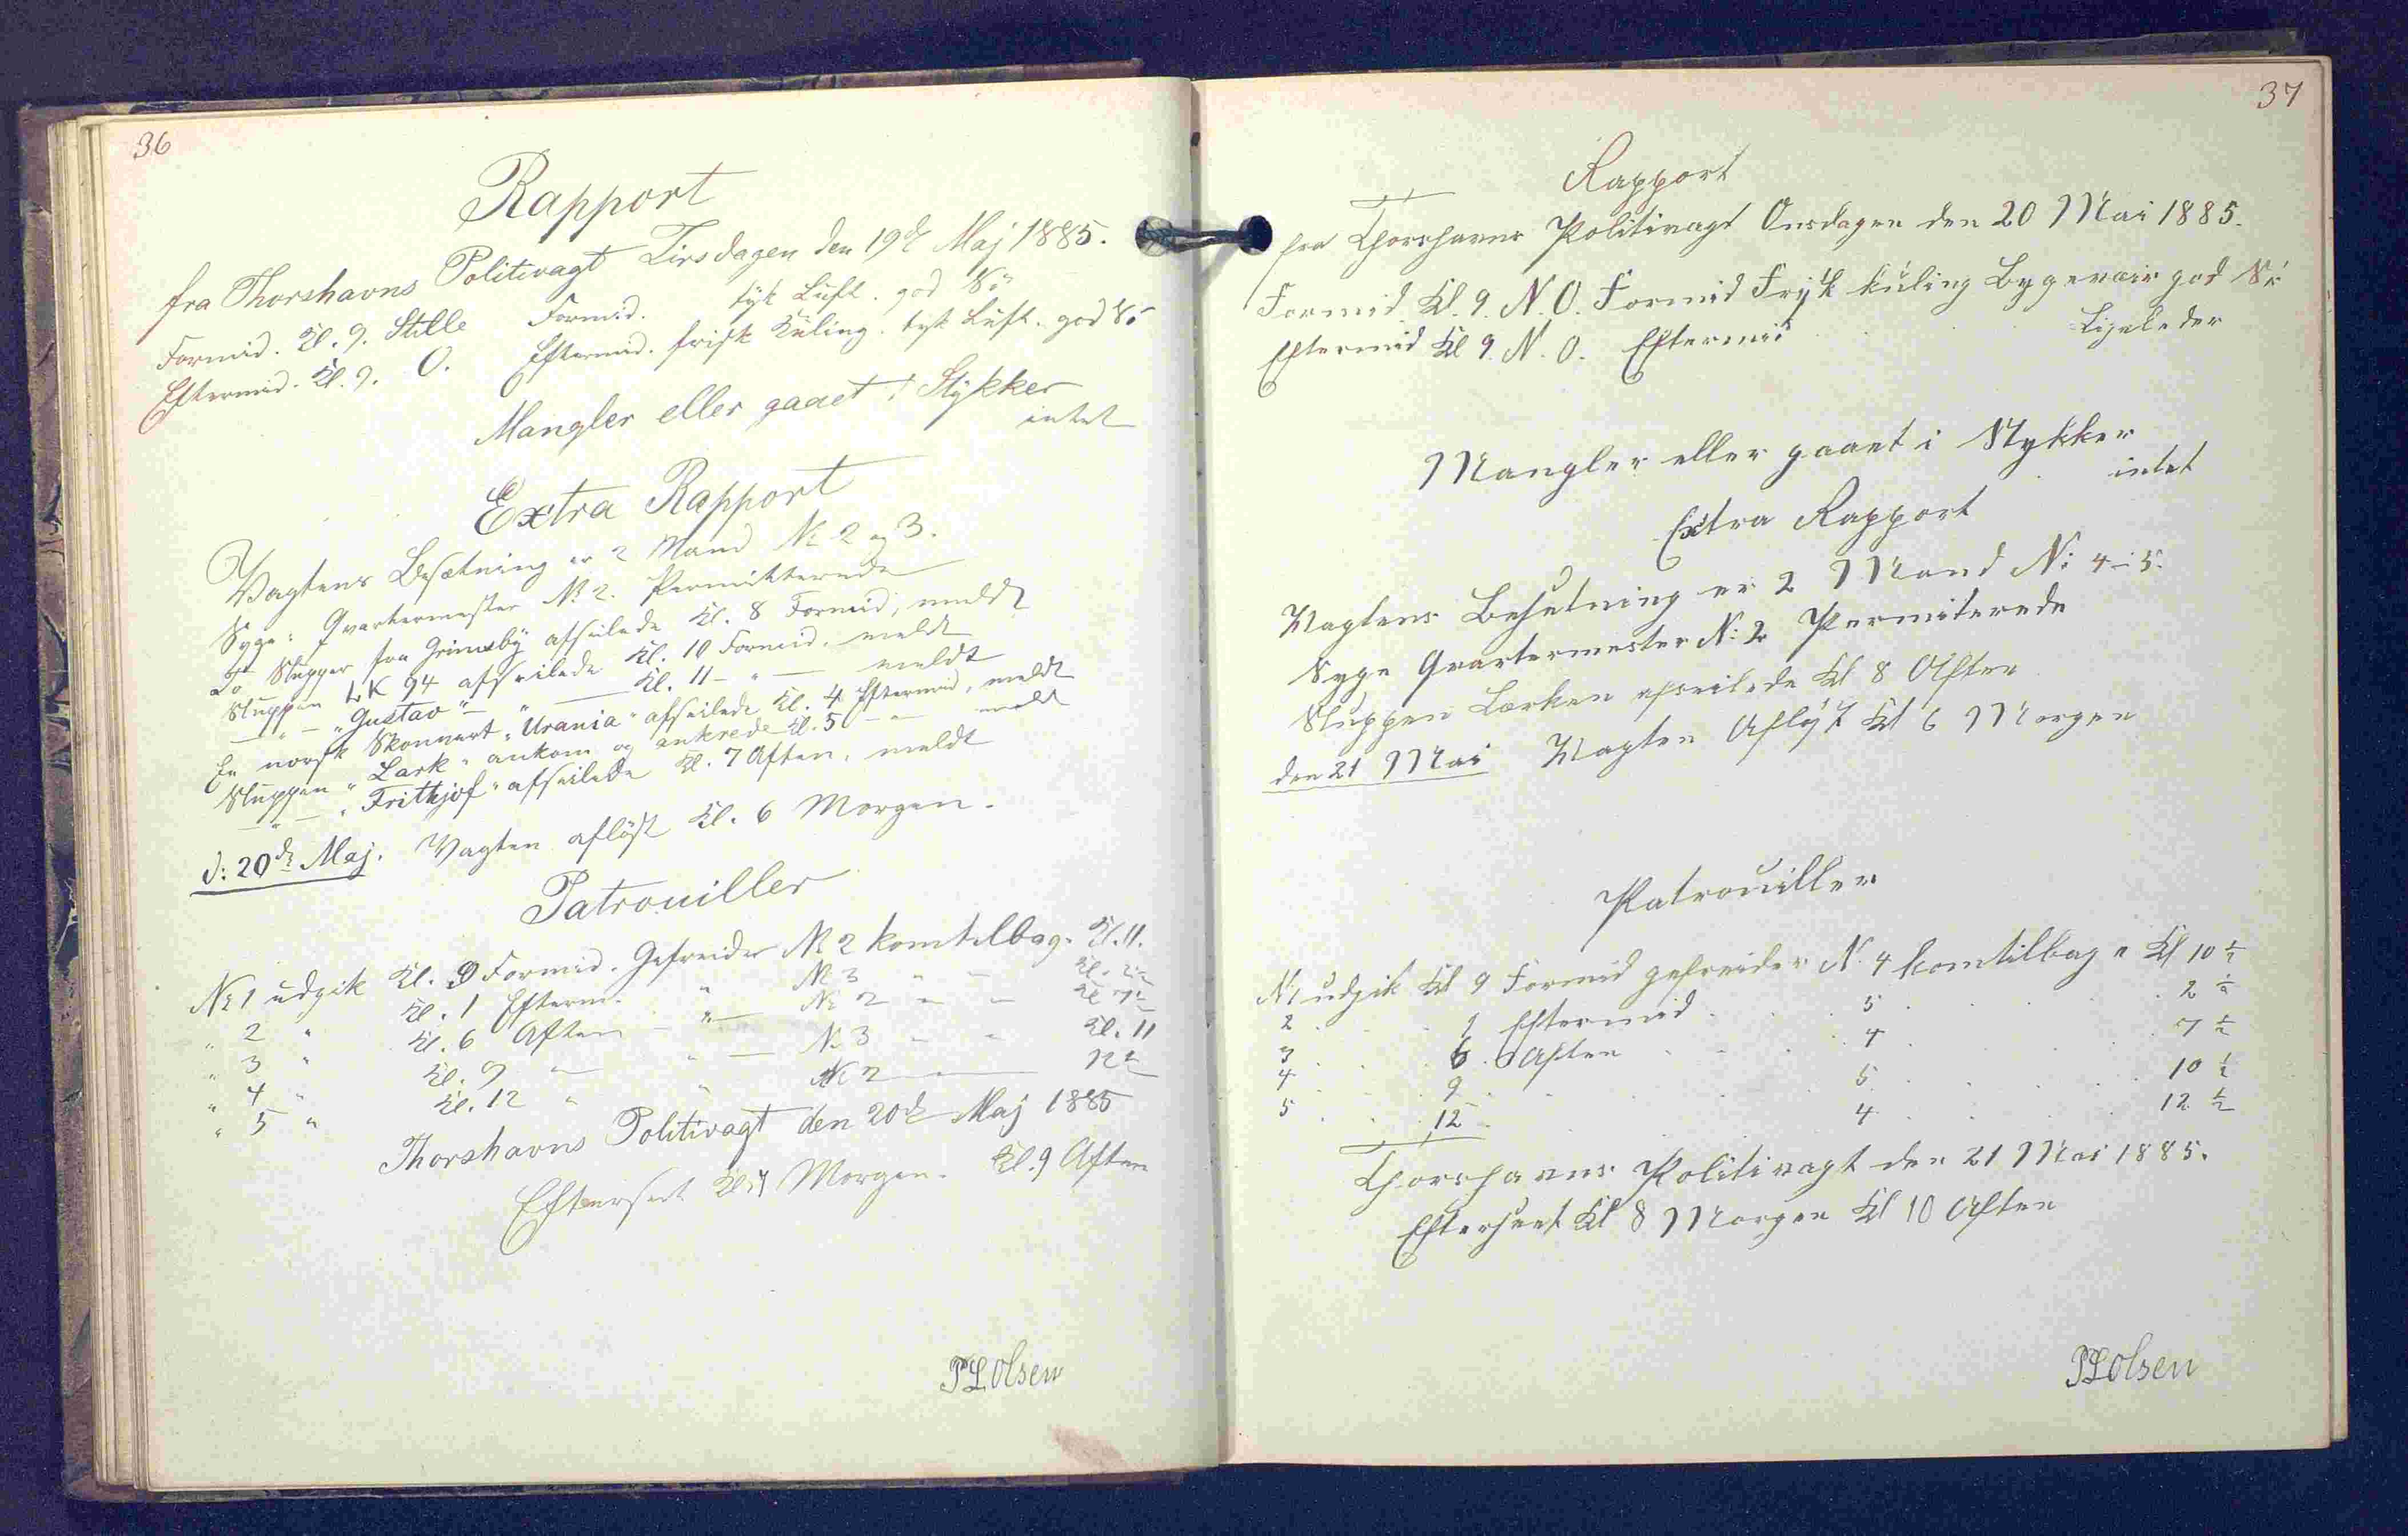 36
Rapport
fra Thorshavns Politivagt Tirsdagen den 19de Maj 1885.
Formid. Kl. 9. Stille Formid. tyk Luft. god Sö
Eftermid. Kl. 9. O. Eftermid. frisk Kuling. tyk Luft. god Sö
Mangler eller gaaet i Stykker
intet
Extra Rapport
Vagtens Besætning er 2 Mand No 2 og 3.
Syge: Qvartermester No 2. Permitterede
To Slupper fra Grimsby afseilede Kl. 8 Formid, meldt
Sluppen LK 94 afseilede Kl. 10 Formid. meldt
— " — "Gustav" — " — Kl. 11 — " — meldt
En norsk Skonnert "Urania" afseilede Kl. 4 Eftermid, meldt
Sluppen "Lark" ankom og ankrede Kl. 5 — " — meldt
— " — "Frithjof" afseilede Kl. 7 Aften, meldt
d: 20de Maj. Vagten aflöst Kl. 6 Morgen.
Patrouiller
No 1 udgik Kl. 9 Formid. Gefreider No 2 kom tilbag. Kl. 11.
" 2 " Kl. 1 Efterm. " No 3 " — Kl. 2½
" 3 " Kl. 6 Aften — " — No 2 " " Kl 7½
" 4 " Kl. 9 — " — No 3 " " Kl. 11
" 5 " Kl. 12 " " No 2 — 12½
Thorshavns Politivagt den 20de Maj 1885
Efterseet Kl. Morgen. Kl. 9 Aften
PLOlsen
37
Rapport
fra Thorshavns Politivagt Onsdagen den 20 Mai 1885.
Formid Kl. 9. N.O. Formid Frysk Kuling Bygevæir god Sö
Eftermid Kl 9. N.O. Eftermid Ligeleder
Mangler eller gaaet i Stykker
intet
Extra Rapport
Vagtens Besetning er 2 Mand No 4-5.
Syge Qvartermester No 2 Permiterede
Sluppen Lærken afseilede Kl 8 Aften
den 21 Mai Vagten Afløst Kl 6 Morgen
Patrouiller
No 1 udgik Kl 9 Formid gefreider No 4 kom tilbage Kl 10 ½
2 . . 1 Eftermid . . 5 . . 2 ½
3 . . 6 Aften . . 4 . . 7 ½
4 . . 9 . . 5 . . 10 ½
5 . . 12 . . 4 . . 12 ½
Thorshavns Politivagt den 21 Mai 1885.
Efterseet Kl 8 Morgen Kl 10 Aften
PLOlsen